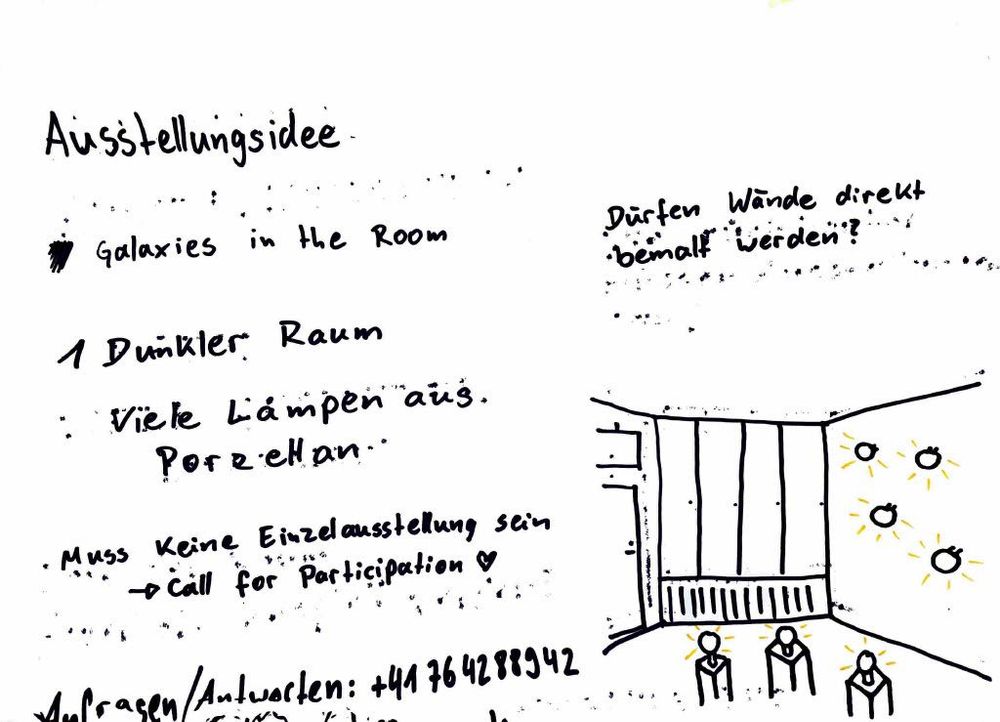 Ausstellungsidee
Galaxies in the Room
1 Dunkler Raum
Viele Lampen aus
Porzellan
Muss keine Einzelausstellung sein
→ Call for Participation ♥
Anfragen/Antworten: +41 76 428 89 42
Dürfen Wände direkt
bemalt werden?